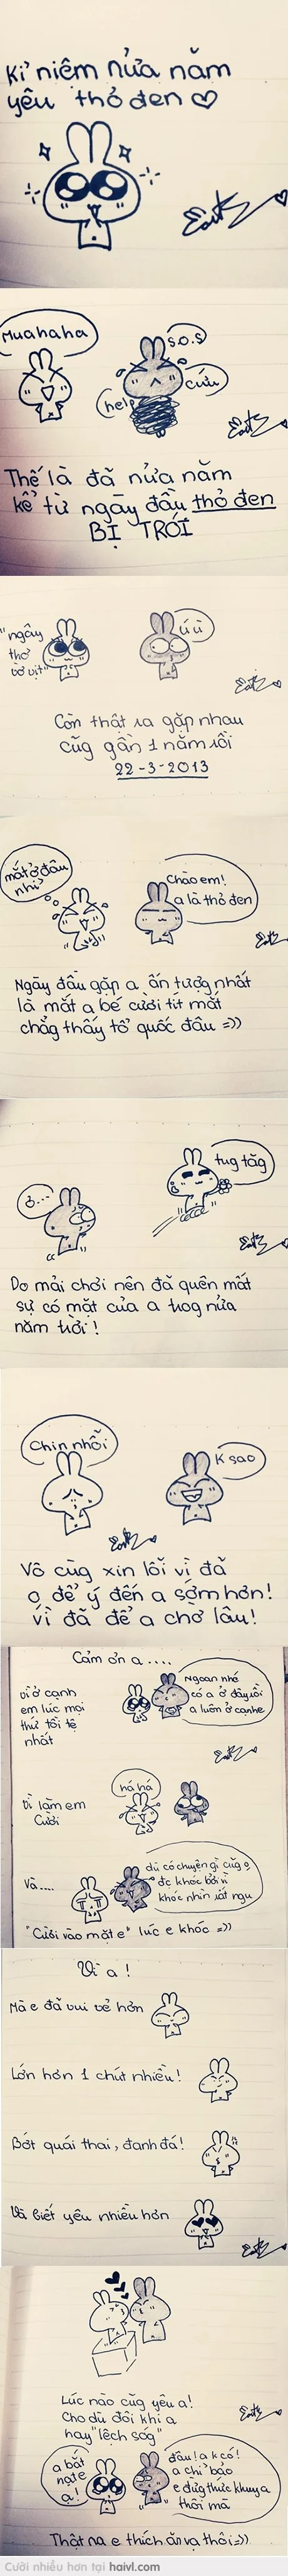 Kỉ niệm nửa năm
yêu thỏ đen ♡
Muahaha
S.O.S
cứu
help
Thế là đã nửa năm
kể từ ngày đầu thỏ đen
BỊ TRÓI
"ngây
thơ
vô vịt"
úù
Còn thật ra gặp nhau
cũg gần 1 năm rồi
22-3-2013
mắt ở đâu
nhỉ
Chào em!
a là thỏ đen
Ngày đầu gặp a ấn tượg nhất
là mắt a bé cười tít mắt
chẳg thấy tổ quốc đâu =))
ơ...
tug tăg
Do mải chơi nên đã quên mất
sự có mặt của a trog nửa
năm trời!
Chin nhỗi
K sao
Vô cùg xin lỗi vì đã
o để ý đến a sớm hơn!
Vì đã để a chờ lâu!
Cảm ơn a....
Vì ở cạnh
em lúc mọi
thứ tồi tệ
nhất
Ngoan nhé
có a ở đây rồi
a luôn ở cạnh e
Vì làm em
Cười
há há
Và....
dù có chuyện gì cũg o
đc khóc bởi vì
khóc nhìn rất ngu
"Cười vào mặt e" lúc e khóc =))
Vì a!
Mà e đã vui vẻ hơn
Lớn hơn 1 chút nhiều!
Bớt quái thai, đanh đá!
Và biết yêu nhiều hơn
Lúc nào cũg yêu a!
Cho dù đôi khi a
hay "lệch sóg"
a bắt
nạt e
à!
đâu! a k có!
a chỉ bảo
e đừg thức khuya
thôi mà
Thật ra e thích ăn vạ thôi =))
Cười nhiều hơn tại haivl.com